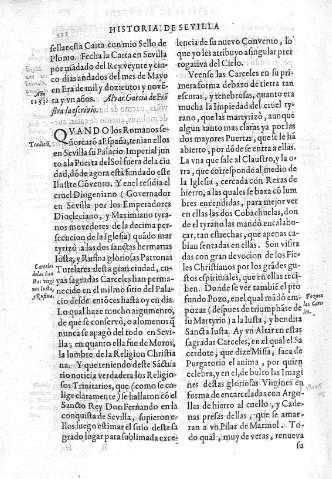 HISTORIA DE SEVILLA
sellar esta Carta con mio Sello de
Plomo. Fecha la Carta en Sevilla
por mādado del Rey veynte y cin-
co dias andados del mes de Mayo
en Era de mil y dozientos y noven
ta y un años. Alvar Garcia de Frō
sta la escrivio.
Tradició.
QVANDO los Romanos se-
ñorearō a España, teniā ellos
en Sevilla su Palacio Imperial jun
to a la Puerta del Sol fuera de la ciu
dad, dō de agora està fundado este
Ilustre Cōvento. Y en el residia el
cruel Diogeniano (Governador
en Sevilla por los Emperadores
Diocleciano, y Maximiano tyra-
nos movedores de la decima per-
secucion de la Iglesia) quādo mar
tyrizò a las dos sanctas hermanas
Iusta, y Rufina gloriosas Patronas
Tutelares desta gran ciudad, cu-
yas sagradas Carceles han perma-
necido en el mismo sitio del Pala
cio desde entōces hasta oy en dia.
Carceles
Rufina
Lo qual haze mucho argumento,
de que se conservò, o a lo menos
nunca se apagò del todo en Sevi-
lla, en quanto ella fue de Moros,
la lumbre de la Religion Christia
na. Y que teniendo deste Sāctua
rio noticia verdadera los Religio-
sos Trinitarios, que (como se co-
lige claramente) se hallaron cō el
Sancto Rey Don Fernando en la
conquista de Sevilla, supieron e-
llos luego estimar el sitio deste sa
grado lugar para sublimada exce-
lencia de su nuevo Convento, lo
que yo les atribuyo a singular pre
rogativa del Cielo.
Veense las Carceles en su pri-
mera forma debaxo de tierra tan
escuras, y tenebrosas, quanto era
mucha la Impiedad del cruel ty-
rano, que las martyrizò, aunque
algun tanto mas claras ya por las
dos mayores Puertas, que se le hā
abierto, por dō de se entra a ellas.
La una que sale al Claustro, y la o-
tra, que corresponde al medio de
la Iglesia, cercada con Rexas de
hierro, a las quales se baxa cō lum
bres encendidas, para mejor ver
en ellas las dos Cobachuelas, don
de el tyrano las mandò encalabo-
çar, tan estrechas, que apenas ca-
bian sentadas en ellas. Son visita
das con gran devocion de los Fie-
les Christianos por los grādes gus-
tos espirituales, que en ellas reci-
ben. Donde se ver tambiē el pro
fundo Pozo, en el qual mādò em-
pozar (despues de triumphar de
su Martyrio) a la Iusta, y bendita
Sancta Iusta. Ay un Altar en estas
sagradas Carceles, en el qual el Sa
cerdote, que dize Missa, saca de
Purgatorio el anima, por quien
celebra, y en el, de bulto las Imagi
nes destas gloriosas Virgines en
forma de encarceladas con Argo-
llas de hierro al cuello, y Cade-
nas presas dellas, que se ama-
rran a un Pilar de Marmol. To-
do qual, muy de veras, renueva
su